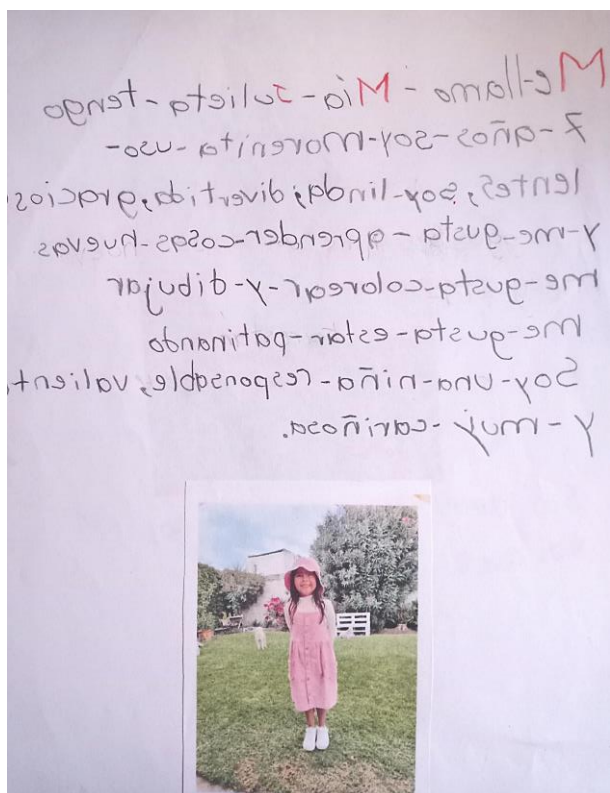 Me-llamo - Mía - Julieta - tengo
7 - años - soy - morenita - uso -
lentes, soy - linda, divertida, gracios
y - me - gusta - aprender - cosas - nuevas
me - gusta - colorear - y - dibujar
me - gusta - estar - patinando
Soy - una - niña - responsable, valient
y - muy - cariñosa.